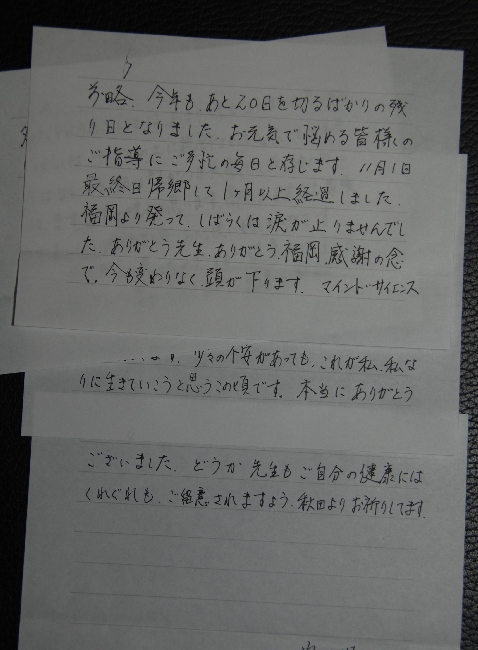 前略、今年も、あと20日を切るばかりの残
り日となりました、お元気で悩める皆様の
ご指導にご多忙の毎日と存じます。11月1日
最終日帰郷して1ヶ月以上経過しました、
福岡より発って、しばらくは涙が止りませんでし
た、ありがとう先生、ありがとう、福岡、感謝の念
で、今も変わりなく頭が下ります。マインド・サイエンス
少々の不安があっても、これが私、私な
りに生きていこうと思うこの頃です。本当にありがとう
ございました、どうか先生もご自分の健康には
くれぐれも、ご留意されますよう、秋田よりお祈りしてます。